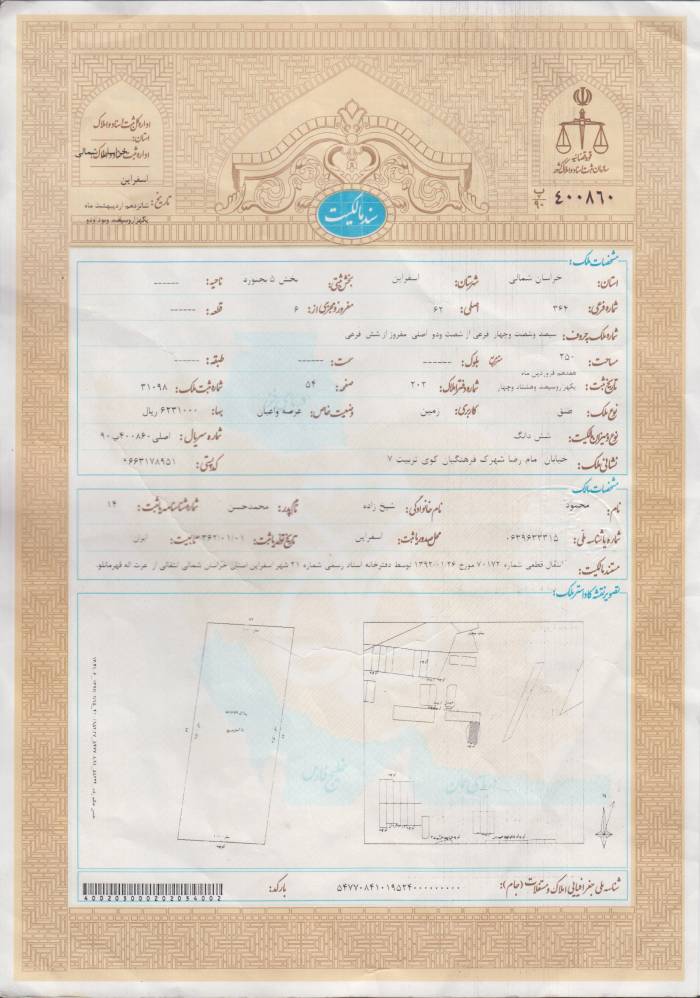 قوه قضائیه
سازمان ثبت اسناد و املاک کشور
۴۰۰۸۶۰ ب/۹۰
اداره کل ثبت اسناد و املاک
استان: خراسان شمالی
اداره ثبت اسناد و املاک
اسفراین
تاریخ: شانزدهم اردیبهشت ماه
یکهزار و سیصد و نود و دو
سند مالکیت
مشخصات ملک:
استان: خراسان شمالی شهرستان: اسفراین بخش ثبتی: بخش ۵ بجنورد ناحیه: ------
شماره فرعی: ۳۶۴ اصلی: ۶۲ مفروز و مجزی از: ۶ قطعه: ------
شماره ملک بحروف: سیصد وشصت وچهار فرعی از شصت ودو اصلی مفروز از شش فرعی
مساحت: ۲۵۰ مترمربع بلوک: ------ سمت: ------ طبقه: ------
تاریخ ثبت: هفدهم فروردین ماه یکهزار وسیصد وهشتاد وچهار شماره دفتر املاک: ۲۰۲ صفحه: ۵۴ شماره ثبت ملک: ۳۱۰۹۸
نوع ملک: طلق کاربری: زمین وضعیت خاص: عرصه واعیان بها: ۶۲۳۱۰۰۰ ریال
نوع و میزان مالکیت: شش دانگ شماره سریال: اصلی ۴۰۰۸۶۰ ب ۹۰
نشانی ملک: خیابان امام رضا شهرک فرهنگیان کوی تربیت ۷ کد پستی: ۹۶۶۳۱۷۸۹۵۱
مشخصات مالک:
نام: محمود نام خانوادگی: شیخ زاده نام پدر: محمدحسن شماره شناسنامه یا ثبت: ۱۴
شماره یا شناسه ملی: ۰۶۳۹۶۳۳۳۱۵ محل صدور یا ثبت: اسفراین تاریخ تولد یا ثبت: ۱۳۶۲/۰۱/۰۱ تابعیت: ایران
مستند مالکیت: انتقال قطعی شماره ۷۰۱۷۲ مورخ ۱۳۹۲/۰۱/۲۶ توسط دفترخانه اسناد رسمی شماره ۲۱ شهر اسفراین استان خراسان شمالی انتقالی از عزت اله قهرمانلو.
تصویر نقشه کاداستر ملک:
خلیج فارس
دریای عمان
شناسه ملی جغرافیایی املاک و مستغلات (جام): ۵۴۷۷۰۸۴۱۰۱۹۵۲۴۰۰۰۰۰۰۰۰۰
بارکد:
400203000202034002